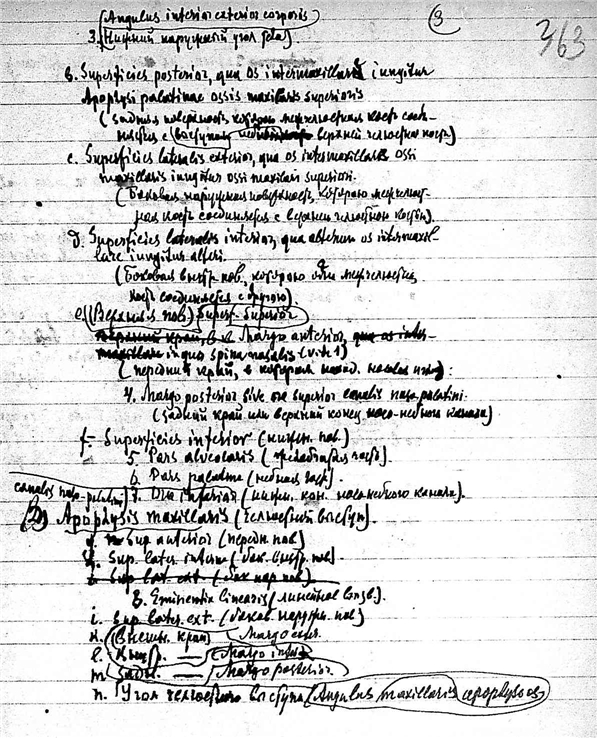 (Angulus inferior exterior corporis
3. (Нижний наружный угол тела).
3
363
b. Superficies posterior, qua os intermaxillare iungitur
Apophysi palatinae ossis maxilaris superioris
(задняя поверхность которою межчелюстная кость соеди-
няется с верхней челюстной кост)
c. Superficies lateralis exterior, qua os intermaxillare ossi
maxillaris iungitur ossi maxilari superiori.
(Боковая наружная поверхность, которою межчелюст-
ная кость соединяется с верхней челюстною костью).
d. Superficies lateralis interior, qua alterum os intermaxil-
lare iungitur alteri.
(Боковая внутр. пов., которою одна межчелюстная
кость соединяется с другою).
e. (Верхняя пов.) Superf. Superior
Margo anterior, qua os inter-
maxillare in quo spina nasalis (vide 1)
(передний край, в котором наход.
4. Margo posterior sive os superior canalis naso-palatini.
(задний край или верхний конец носо-небного канала)
f. Superficies inferior (нижн. пов.)
5. Pars alveolaris
6. Pars palatina (небная часть).
canalis naso-palatini 7. Ora inferior (нижн. кон. носонебного канала).
(2) Apophysis maxillaris (челюстный выступ).
Sup anterior (передн. пов)
Sup. later. interna (бок. внутр. пов).
Sup lat. ext. (бок нар пов)
8. Eminentia linearis (линейное возв.).
i. Sup. later. ext. (боков. наружн. пов)
к. (Внешн. край) Margo exter.
l. Margo inter
m. задн. — Margo posterior.
n. Угол челюстного выступа (Angulus maxillaris apophyseos)